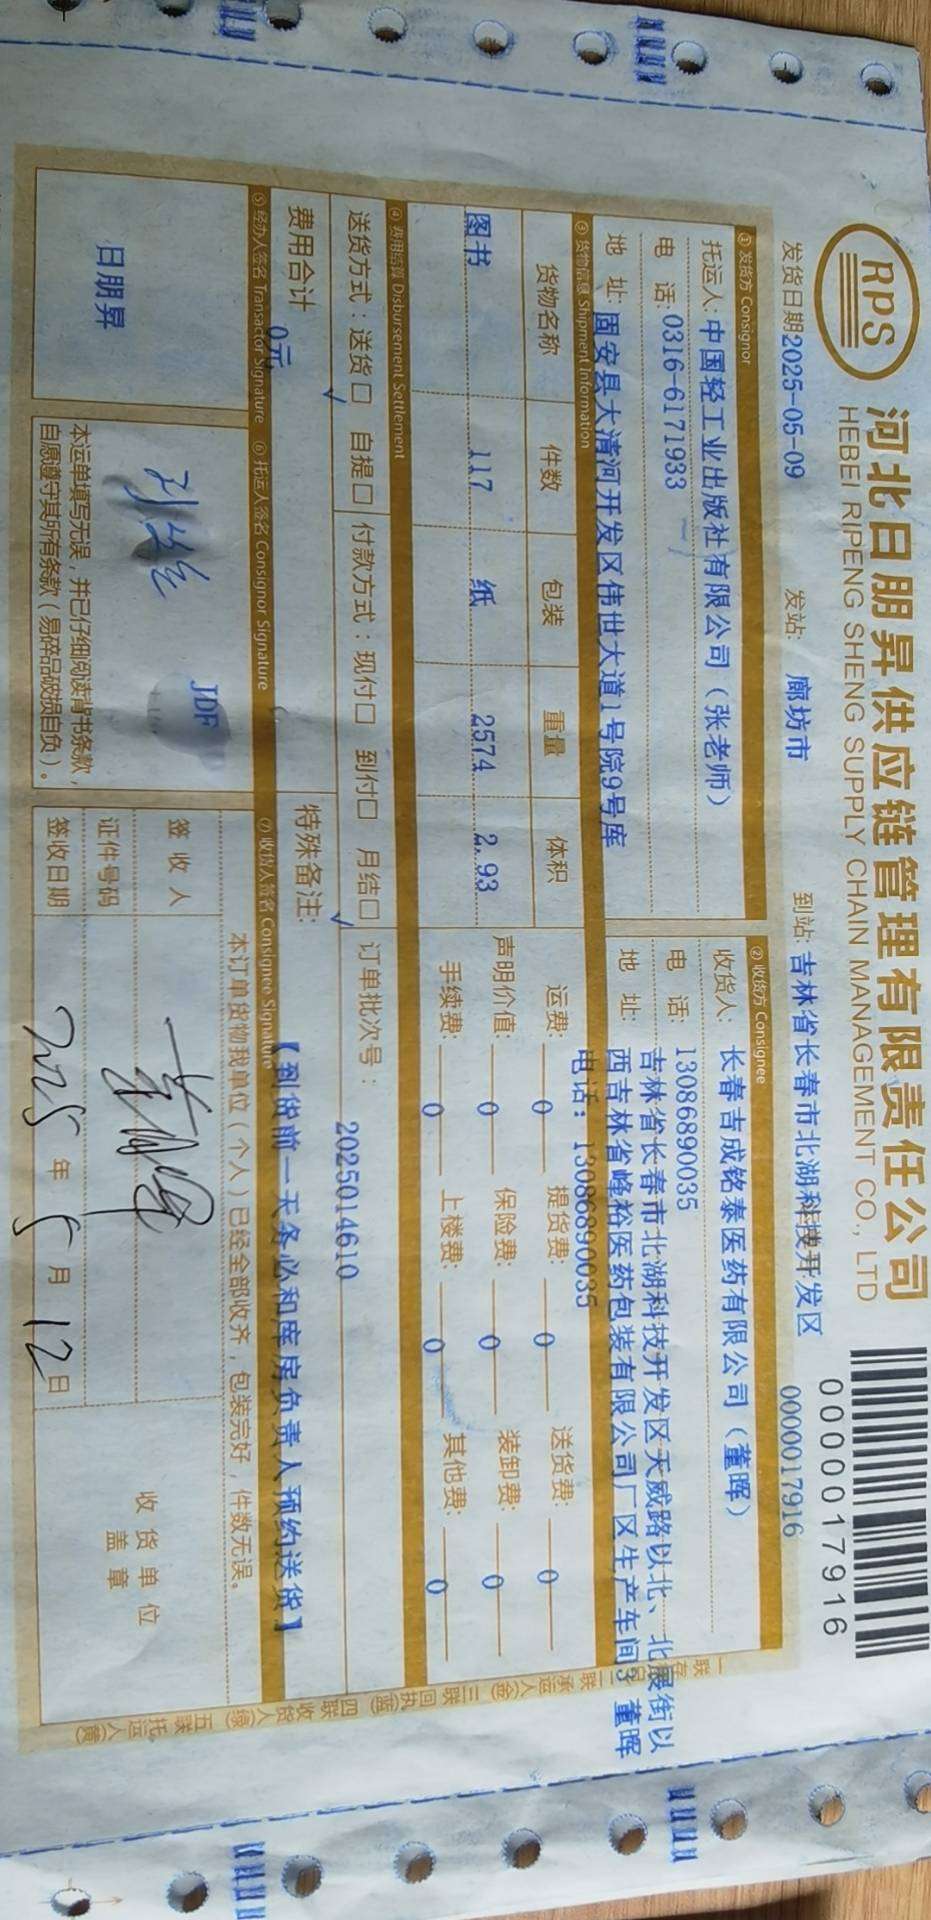 RPS
河北日朋昇供应链管理有限责任公司
HEBEI RIPENG SHENG SUPPLY CHAIN MANAGEMENT CO., LTD
0000017916
发货日期2025-05-09 发站: 廊坊市 到站: 吉林省长春市北湖科技开发区 0000017916
① 发货方 Consignor
托运人: 中国轻工业出版社有限公司（张老师）
电 话: 0316-6171933
地 址: 固安县大清河开发区伟世大道1号院9号库
② 收货方 Consignee
收货人: 长春吉成铭泰医药有限公司（董晖）
电 话: 13086890035
地 址: 吉林省长春市北湖科技开发区天威路以北、北展街以
西吉林省峰松医药包装有限公司厂区生产车间3 董晖
电话: 13086890035
③ 货物信息 Shipment Information
货物名称 件数 包装 重量 体积
图书 117 纸 2574 2.93
运费: 0 提货费: 0 送货费: 0
声明价值: 0 保险费: 0 装卸费: 0
手续费: 0 上楼费: 0 其他费: 0
④ 费用结算 Disbursement Settlement
送货方式: 送货□ 自提□ 付款方式: 现付□ 到付□ 月结□ 订单批次号: 2025014610
✓ ✓
费用合计 0元 特殊备注:
【到货前一天务必和库房负责人预约送货】
⑤ 经办人签名 Transactor Signature
日朋昇
⑥ 托运人签名 Consignor Signature
JDF
本运单填写无误, 并已仔细阅读背书条款,
自愿遵守其所有条款(易碎品破损自负)。
⑦ 收货人签名 Consignee Signature
本订单货物我单位(个人)已经全部收齐, 包装完好, 件数无误。
签 收 人
证件号码
签收日期 2025 年 5 月 12 日
收货单位
盖章
一联 存根 二联 承运人(金) 三联 回执(蓝) 四联 收货人(绿) 五联 托运人(黄)